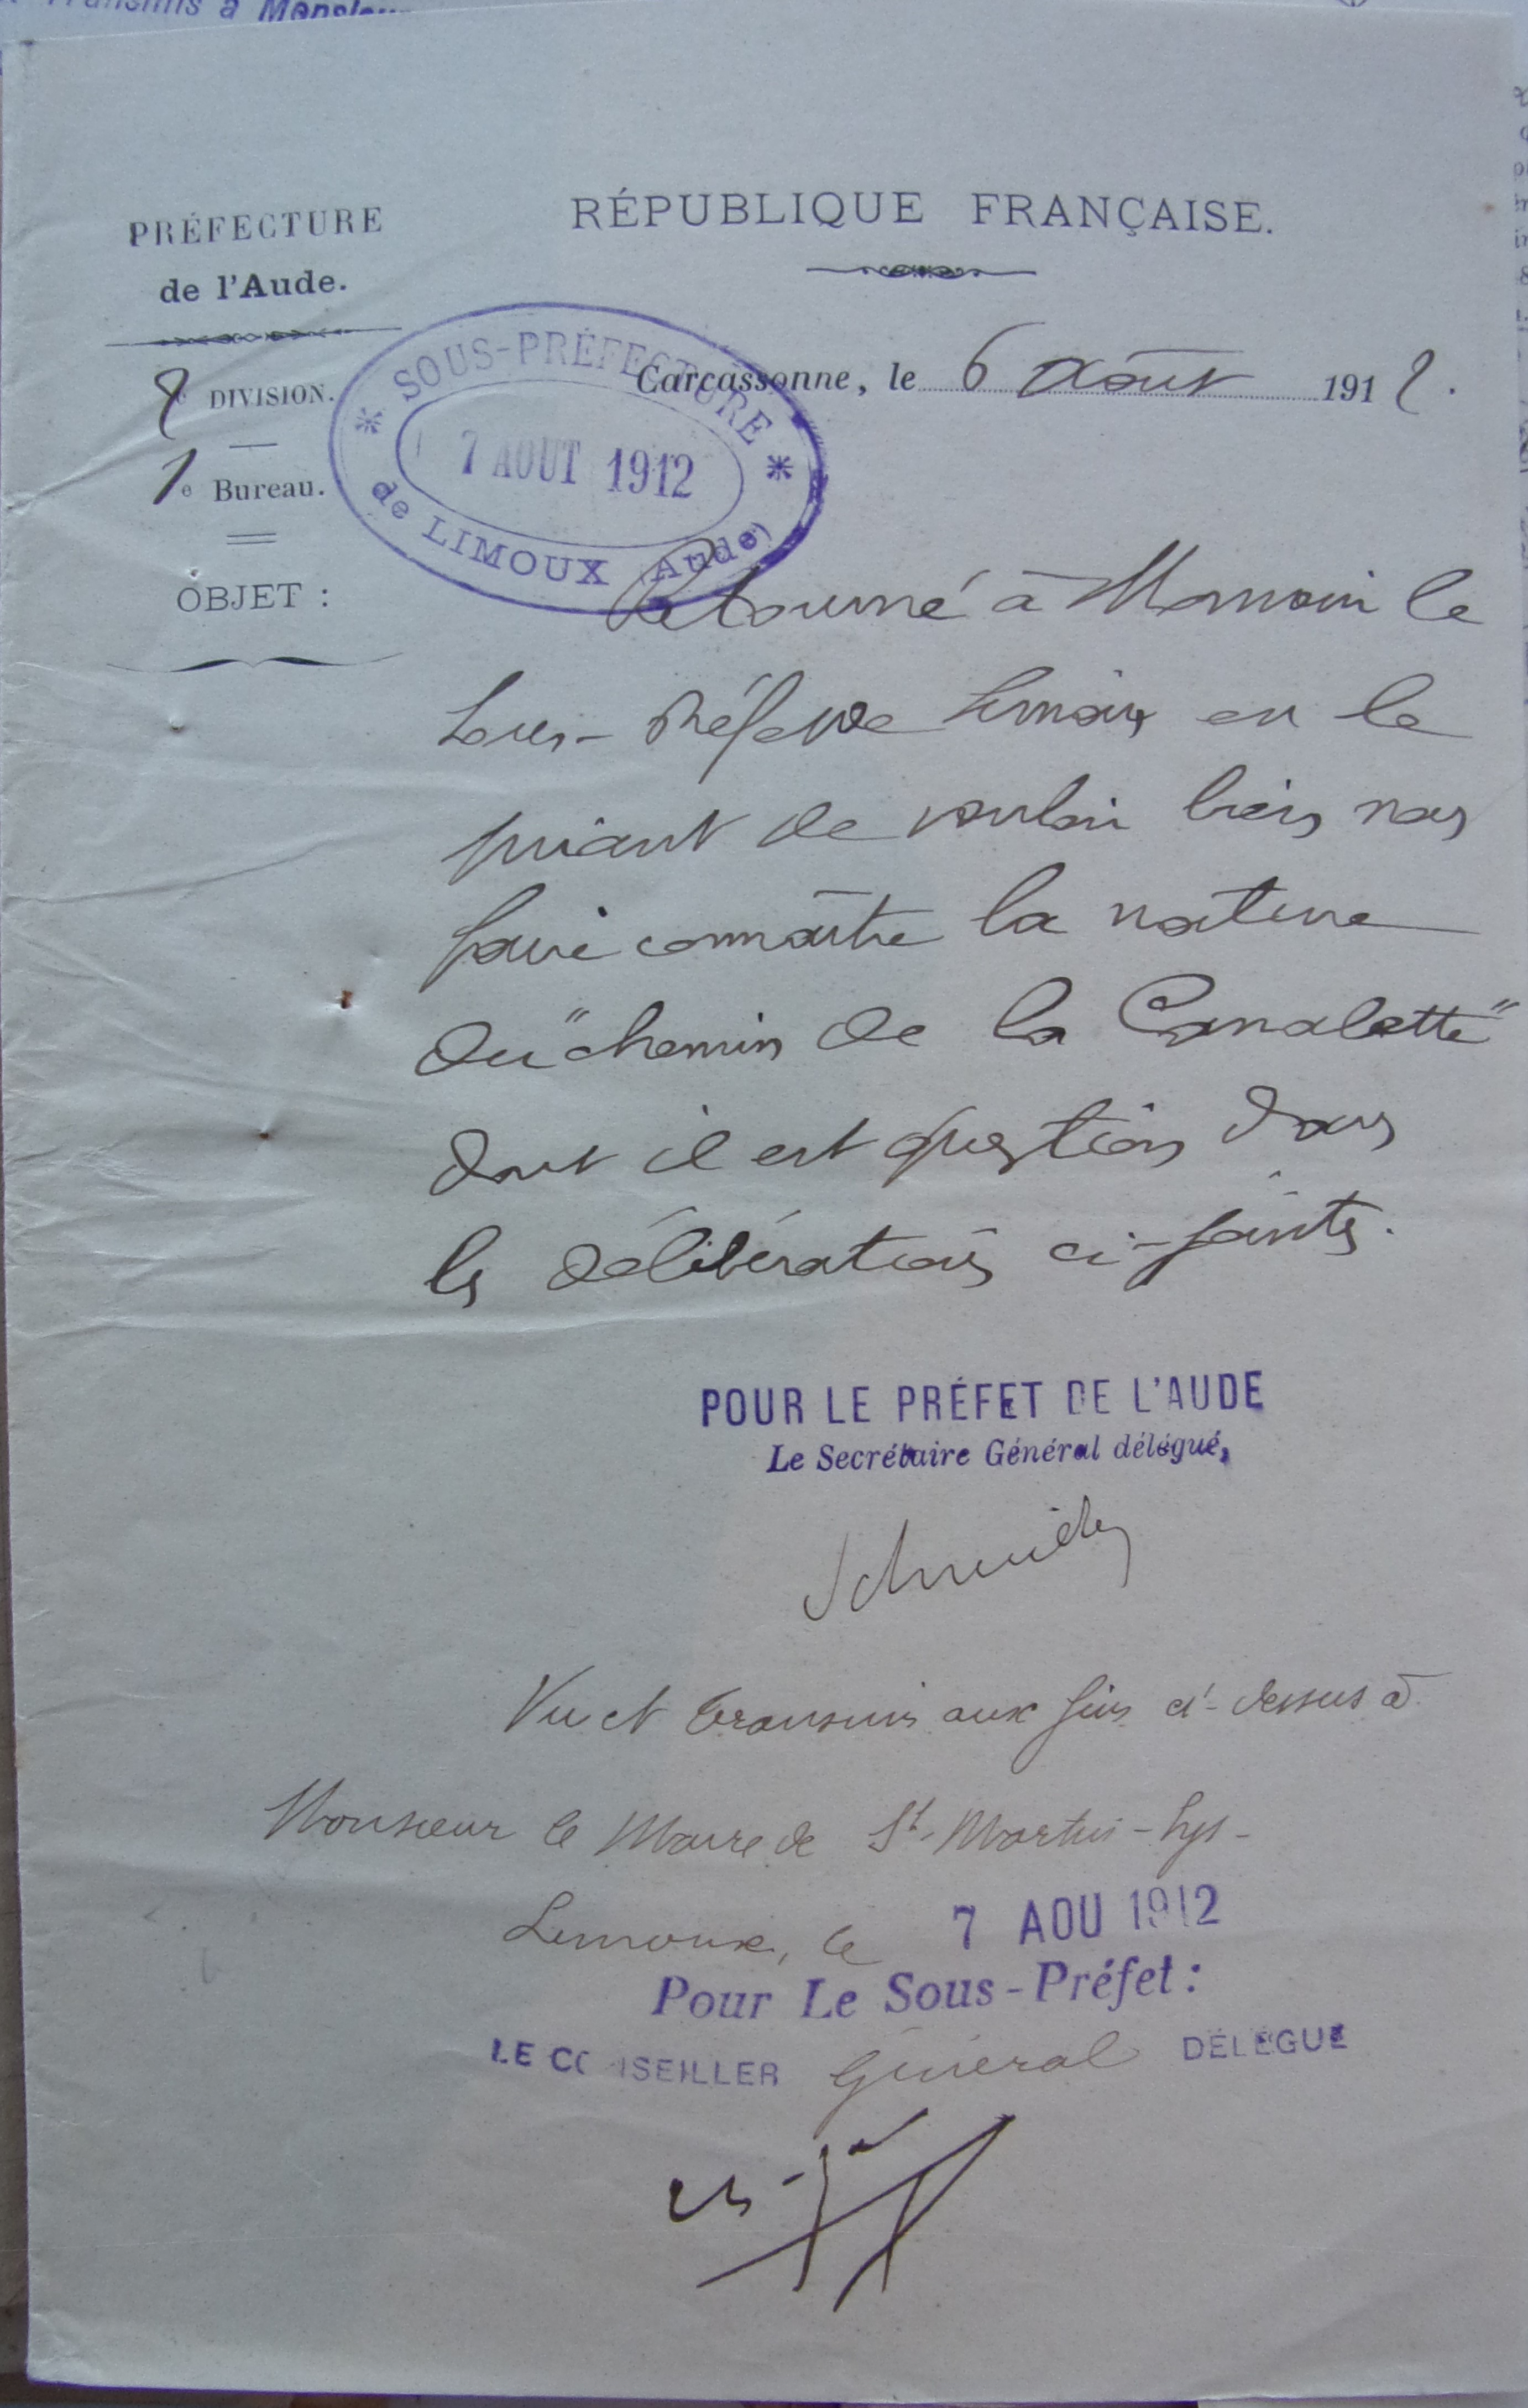 Transmis à Monsieur
PRÉFECTURE
de l'Aude.
RÉPUBLIQUE FRANÇAISE.
2e DIVISION.
1e Bureau.
OBJET :
SOUS-PRÉFECTURE
7 AOUT 1912
de LIMOUX (Aude)
Carcassonne, le 6 Août 1912.
Retourné à Monsieur le
Sous-Préfet de Limoux en le
priant de vouloir bien nous
faire connaître la nature
du "chemin de la Canalette"
dont il est question dans
les délibérations ci-jointes.
POUR LE PRÉFET DE L'AUDE
Le Secrétaire Général délégué,
Vu et transmis aux fins ci-dessus à
Monsieur le Maire de St-Martin-Lys-
Limoux, le 7 AOU 1912
Pour Le Sous-Préfet :
LE CONSEILLER Général DÉLÉGUÉ